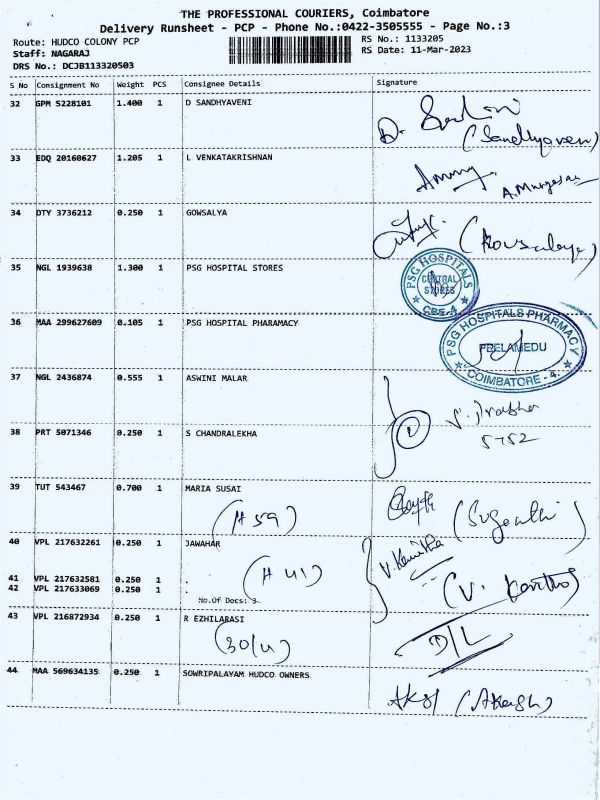 THE PROFESSIONAL COURIERS, Coimbatore
Delivery Runsheet - PCP - Phone No.:0422-3505555 - Page No.:3
Route: HUDCO COLONY PCP
RS No.: 1133205
Staff: NAGARAJ
RS Date: 11-Mar-2023
DRS No.: DCJB113320503
S No Consignment No Weight PCS Consignee Details Signature
32 GPM 5228101 1.400 1 D SANDHYAVENI
D.
(Sandhyaveni)
33 EDQ 20160627 1.205 1 L VENKATAKRISHNAN
34 DTY 3736212 0.250 1 GOWSALYA
(Kousalya)
35 NGL 1939638 1.300 1 PSG HOSPITAL STORES
PSG HOSPITALS
CENTRAL
STORES
CBE-4
36 MAA 299627609 0.105 1 PSG HOSPITAL PHARAMACY
PSG HOSPITALS PHARMACY
PEELAMEDU
COIMBATORE - 4.
37 NGL 2436874 0.555 1 ASWINI MALAR
38 PRT 5071346 0.250 1 S CHANDRALEKHA
39 TUT 543467 0.700 1 MARIA SUSAI
(H 59)
40 VPL 217632261 0.250 1 JAWAHAR
(H 41)
V. Kavitha
41 VPL 217632581 0.250 1 .
42 VPL 217633069 0.250 1 .
No.Of Docs: 3
43 VPL 216872934 0.250 1 R EZHILARASI
(30/4)
D/L
44 MAA 569634135 0.250 1 SOWRIPALAYAM HUDCO OWNERS
(Akash)